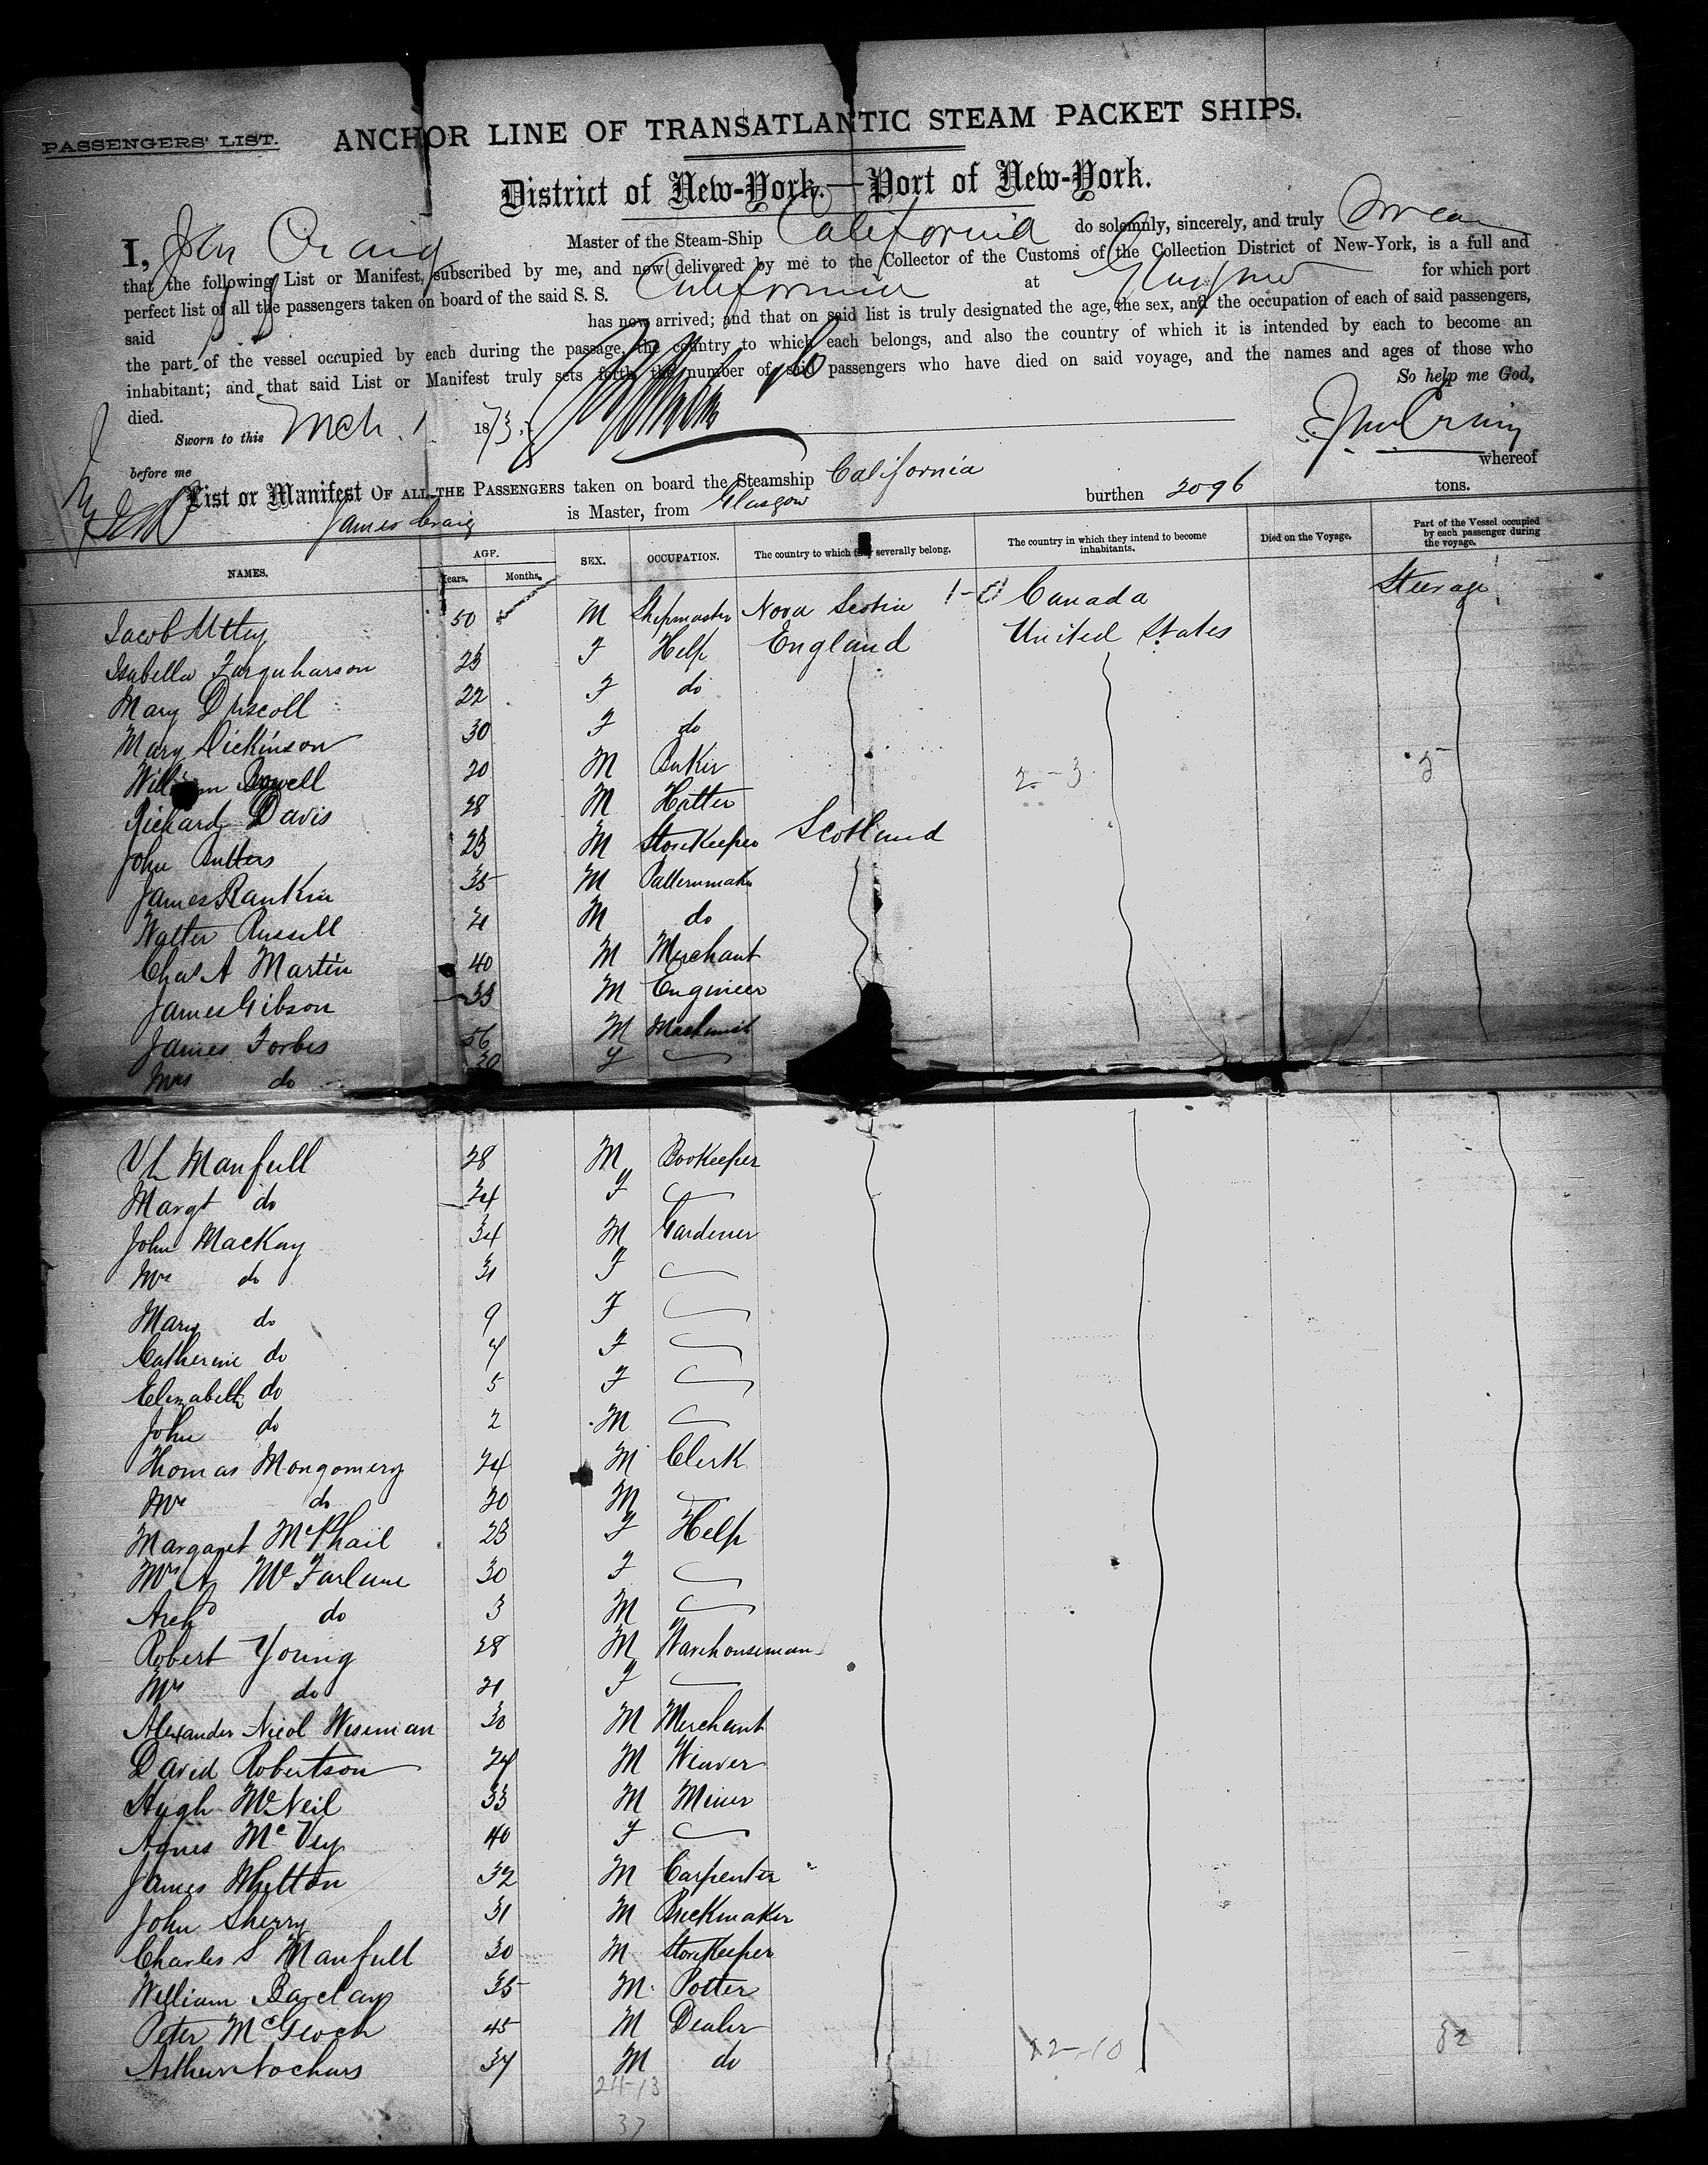 PASSENGERS' LIST.
ANCHOR LINE OF TRANSATLANTIC STEAM PACKET SHIPS.
District of New-York.—Port of New-York.
I, John Craig Master of the Steam-Ship California do solemnly, sincerely, and truly Swear
that the following List or Manifest, subscribed by me, and now delivered by me to the Collector of the Customs of the Collection District of New-York, is a full and
perfect list of all the passengers taken on board of the said S. S. California at Glasgow for which port
said has now arrived; and that on said list is truly designated the age, the sex, and the occupation of each of said passengers,
the part of the vessel occupied by each during the passage, the country to which each belongs, and also the country of which it is intended by each to become an
inhabitant; and that said List or Manifest truly sets forth the number of said passengers who have died on said voyage, and the names and ages of those who
died. So help me God,
Sworn to this Mch. 1 1873. John Craig
before me
List or Manifest OF ALL THE PASSENGERS taken on board the Steamship California whereof
James Craig is Master, from Glasgow burthen 2096 tons.
NAMES. AGE. Years. Months. SEX. OCCUPATION. The country to which they severally belong. The country in which they intend to become inhabitants. Died on the Voyage. Part of the Vessel occupied by each passenger during the voyage.
Jacob Utley 50 M Shipmaster Nova Scotia 1-0 Canada Steerage
Isabella Farquharson 23 F Help England United States
Mary Driscoll 22 F do
Mary Dickinson 30 F do
William 20 M Baker 2-3 5
Richard Davis 28 M Hatter
John Butters 23 M Storekeeper Scotland
James Rankin 35 M Patternmaker
Walter Russell 21 M do
Chas A Martin 40 M Merchant
James Gibson 33 M Engineer
James Forbes 56 M Machinist
Mrs do 30 F
Manfull 28 M Bookeeper
Margt do 24 F
John MacKay 34 M Gardener
Mrs do 31 F
Mary do 9 F
Catherine do 7 F
Elizabeth do 5 F
John do 2 M
Thomas Mongomery 24 M Clerk
Mrs do 20 M
Margaret McPhail 23 F Help
Mrs A McFarlane 30 F
Archd do 3 M
Robert Young 28 M Warehouseman
Mrs do 21 F
Alexander Nicol Wiseman 30 M Merchant
David Robertson 24 M Weaver
Hugh McNeil 33 M Miner
Agnes McVey 40 F
James Whitton 32 M Carpenter
John Sherry 31 M Brickmaker
Charles S Manfull 30 M Storekeeper
William Barclay 35 M Potter
Peter McGeoch 45 M Dealer
Arthur 37 M do 12-10 32
24-13
37